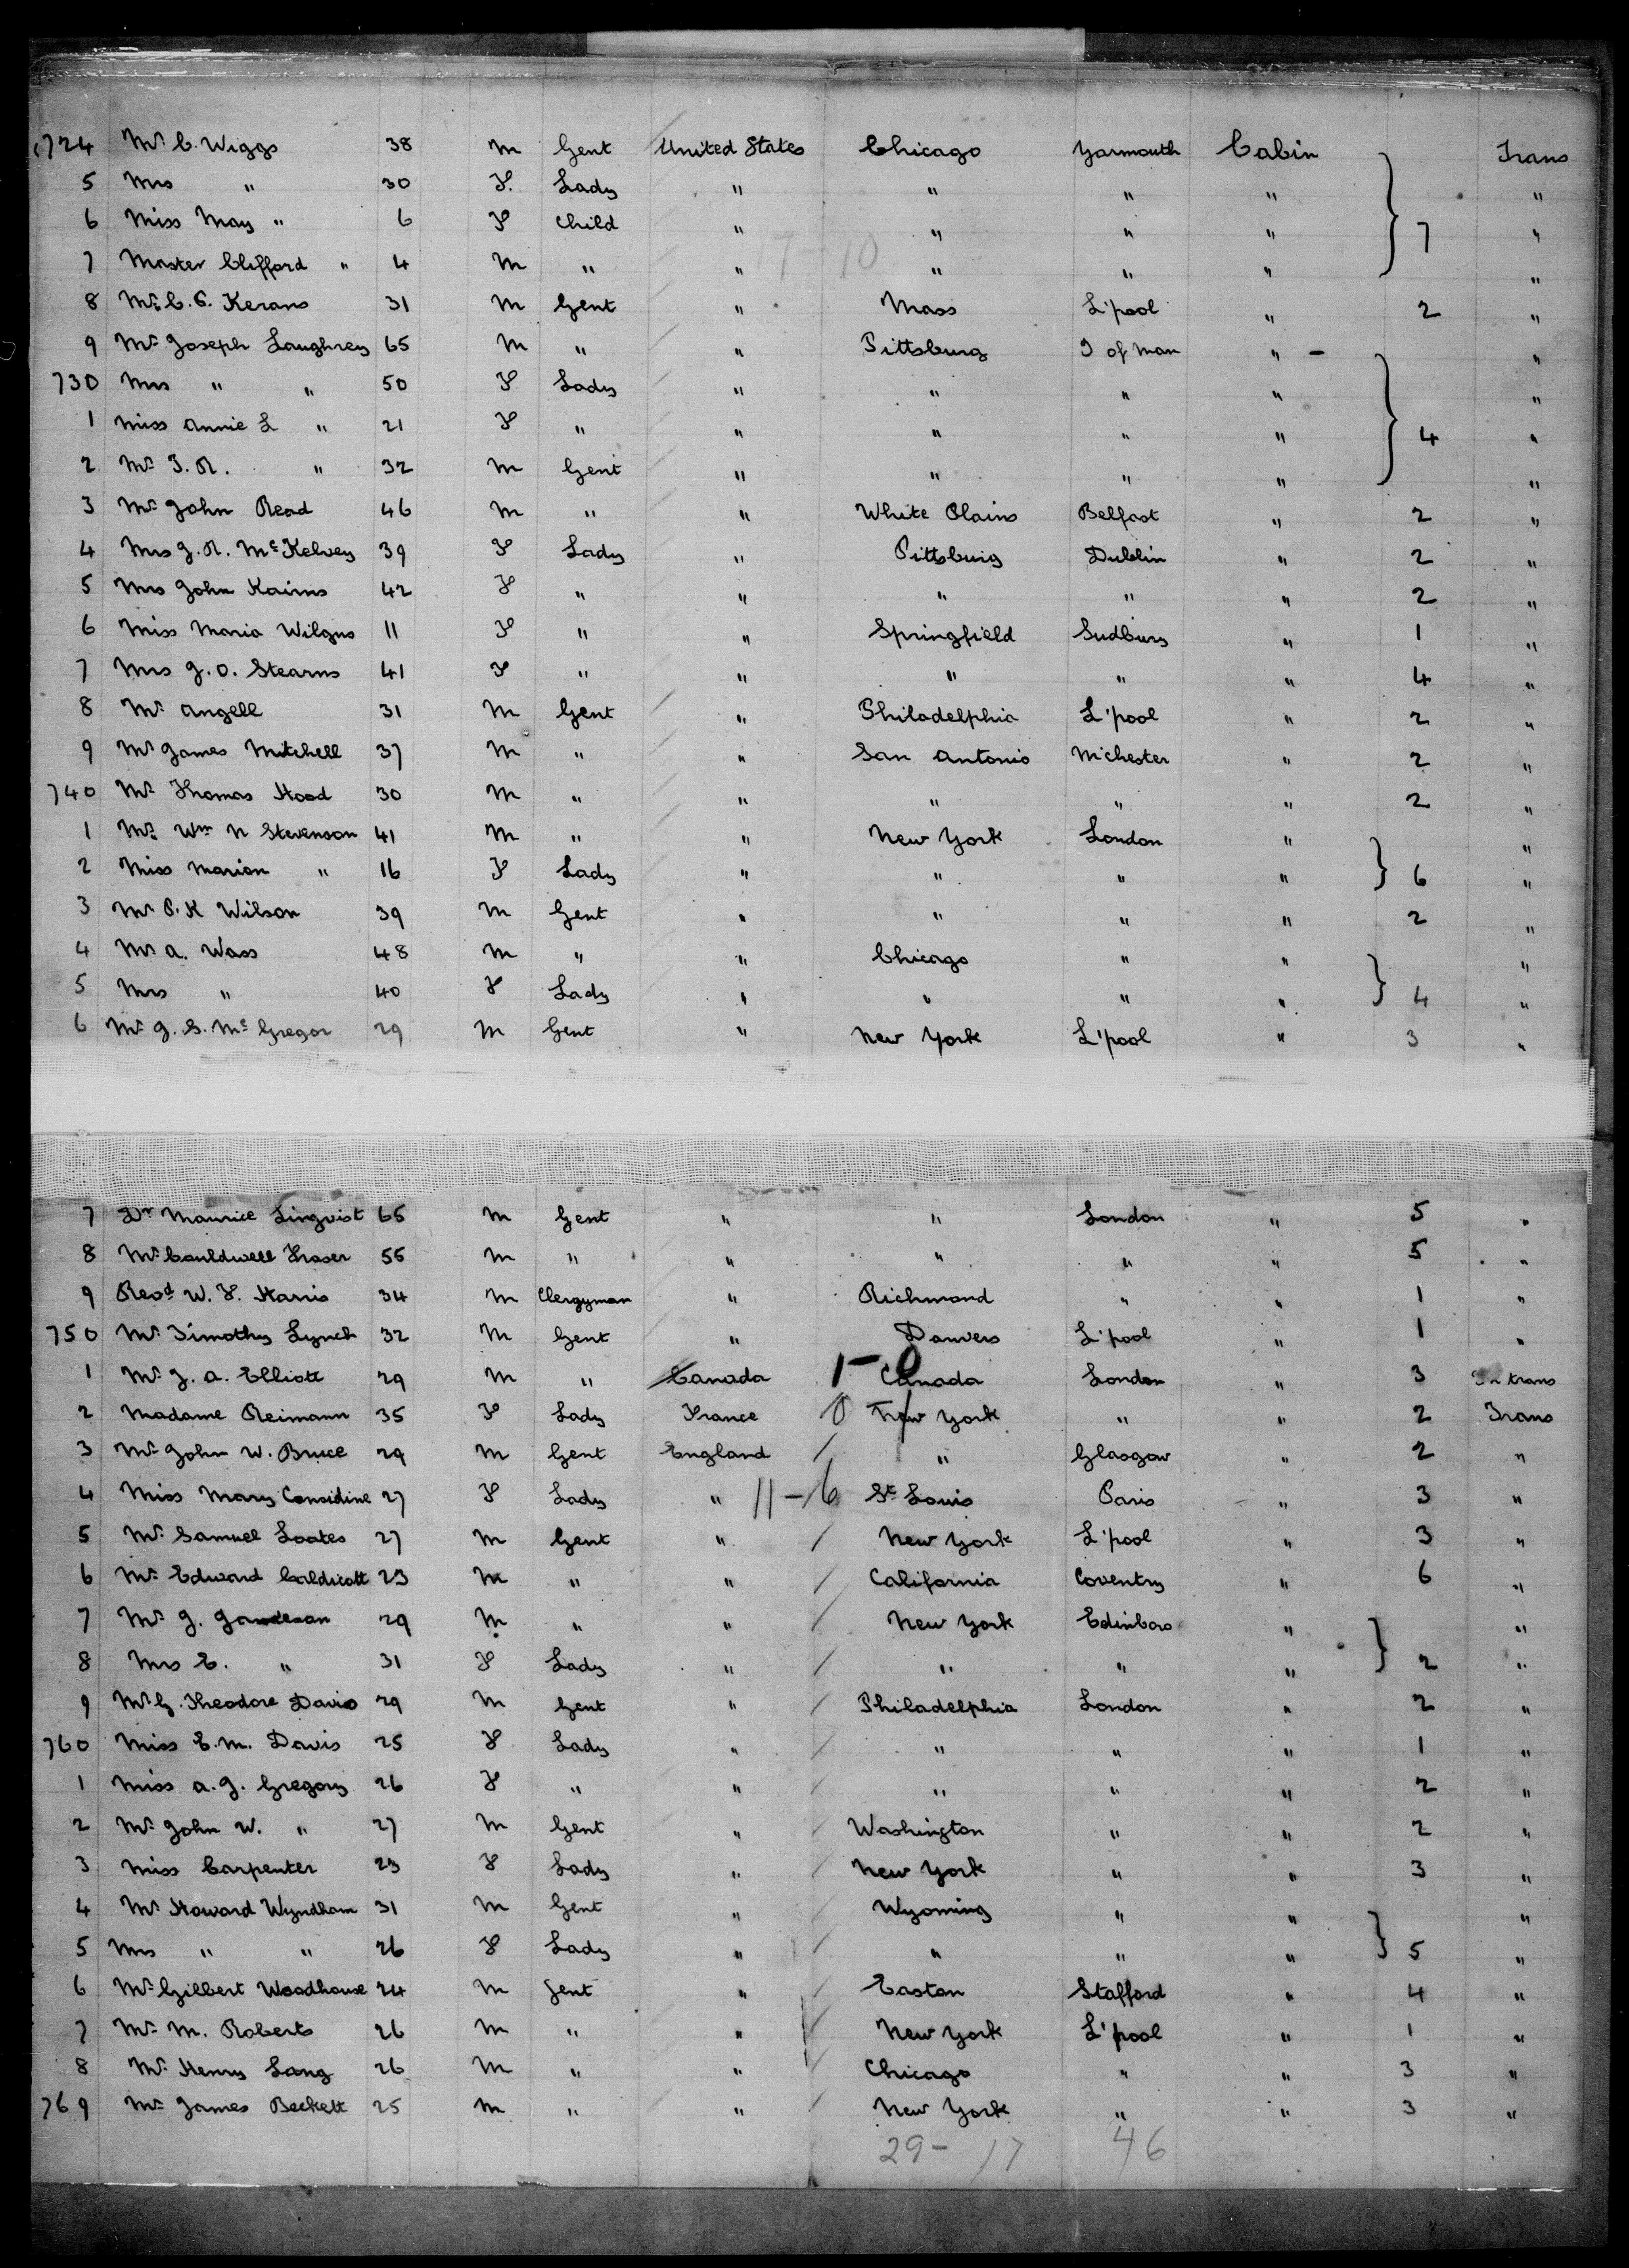 724 Mr C. Wiggs 38 M Gent United States Chicago Yarmouth Cabin Trans
5 Mrs " 30 F. Lady " " " " "
6 Miss May " 6 F Child " " " " 7 "
7 Master Clifford " 4 M " " " " " "
8 Mr C. C. Kerans 31 M Gent " Mass L'pool " 2 "
9 Mr Joseph Laughrey 65 M " " Pittsburg I of Man " - "
730 Mrs " " 50 F Lady " " " " "
1 Miss Annie L " 21 F " " " " " 4 "
2 Mr J. R. " 32 M Gent " " " " "
3 Mr John Read 46 M " " White Plains Belfast " 2 "
4 Mrs J. R. McKelvey 39 F Lady " Pittsburg Dublin " 2 "
5 Mrs John Kairns 42 F " " " " " 2 "
6 Miss Maria Wilgus 11 F " " Springfield Sudbury " 1 "
7 Mrs J. O. Stearns 41 F " " " " " 4 "
8 Mr Angell 31 M Gent " Philadelphia L'pool " 2 "
9 Mr James Mitchell 37 M " " San Antonio M'chester " 2 "
740 Mr Thomas Hood 30 M " " " " " 2 "
1 Mr Wm N Stevenson 41 M " " New York London " "
2 Miss Marion " 16 F Lady " " " " 6 "
3 Mr P. K Wilson 39 M Gent " " " " 2 "
4 Mr A. Wass 48 M " " Chicago " " "
5 Mrs " 40 F Lady " " " " 4 "
6 Mr J. S. McGregor 29 M Gent " New York L'pool " 3 "
7 Dr Maurice Linqvist 65 M Gent " " London " 5 "
8 Mr Cauldwell Fraser 55 M " " " " " 5 "
9 Revd W. F. Harris 34 M Clergyman " Richmond " " 1 "
750 Mr Timothy Lynch 32 M Gent " Danvers L'pool " 1 "
1 Mr J. A. Elliott 29 M " Canada 1-0 Canada London " 3 In trans
2 Madame Reimann 35 F Lady France 0 New York " " 2 Trans
3 Mr John W. Bruce 29 M Gent England " Glasgow " 2 "
4 Miss Mary Considine 27 F Lady " 11-6 St Louis Paris " 3 "
5 Mr Samuel Loates 27 M Gent " New York L'pool " 3 "
6 Mr Edward Caldicott 23 M " " California Coventry " 6 "
7 Mr J. 29 M " " New York Edinboro " "
8 Mrs E. " 31 F Lady " " " " 2 "
9 Mr G. Theodore Davis 29 M Gent " Philadelphia London " 2 "
760 Miss E. M. Davis 25 F Lady " " " " 1 "
1 Miss A. J. Gregory 26 F " " " " " 2 "
2 Mr John W. " 27 M Gent " Washington " " 2 "
3 Miss Carpenter 23 F Lady " New York " " 3 "
4 Mr Howard Wyndham 31 M Gent " Wyoming " " "
5 Mrs " " 26 F Lady " " " " 5 "
6 Mr Gilbert Woodhouse 24 M Gent " Easton Stafford " 4 "
7 Mr M. Roberts 26 M " " New York L'pool " 1 "
8 Mr Henry Lang 26 M " " Chicago " " 3 "
769 Mr James Beckett 25 M " " New York " " 3 "
29- 17 46